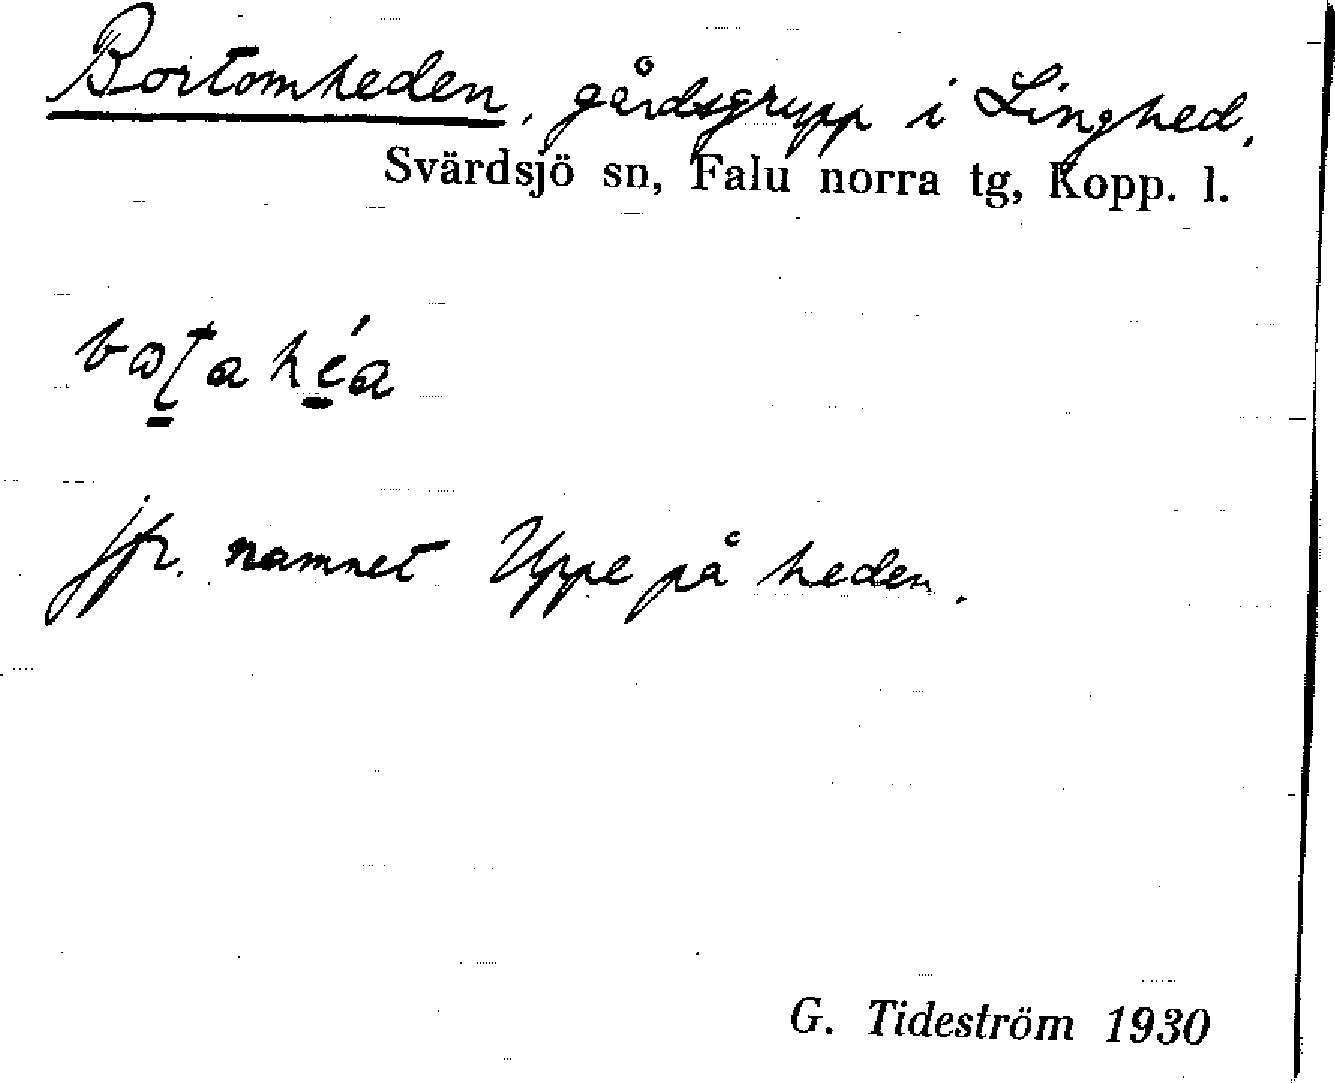 Bortomheden, gårdsgrupp i Linghed,
Svärdsjö sn, Falu norra tg, Kopp. l.
jfr. namnet Uppe på heden.
G. Tideström 1930